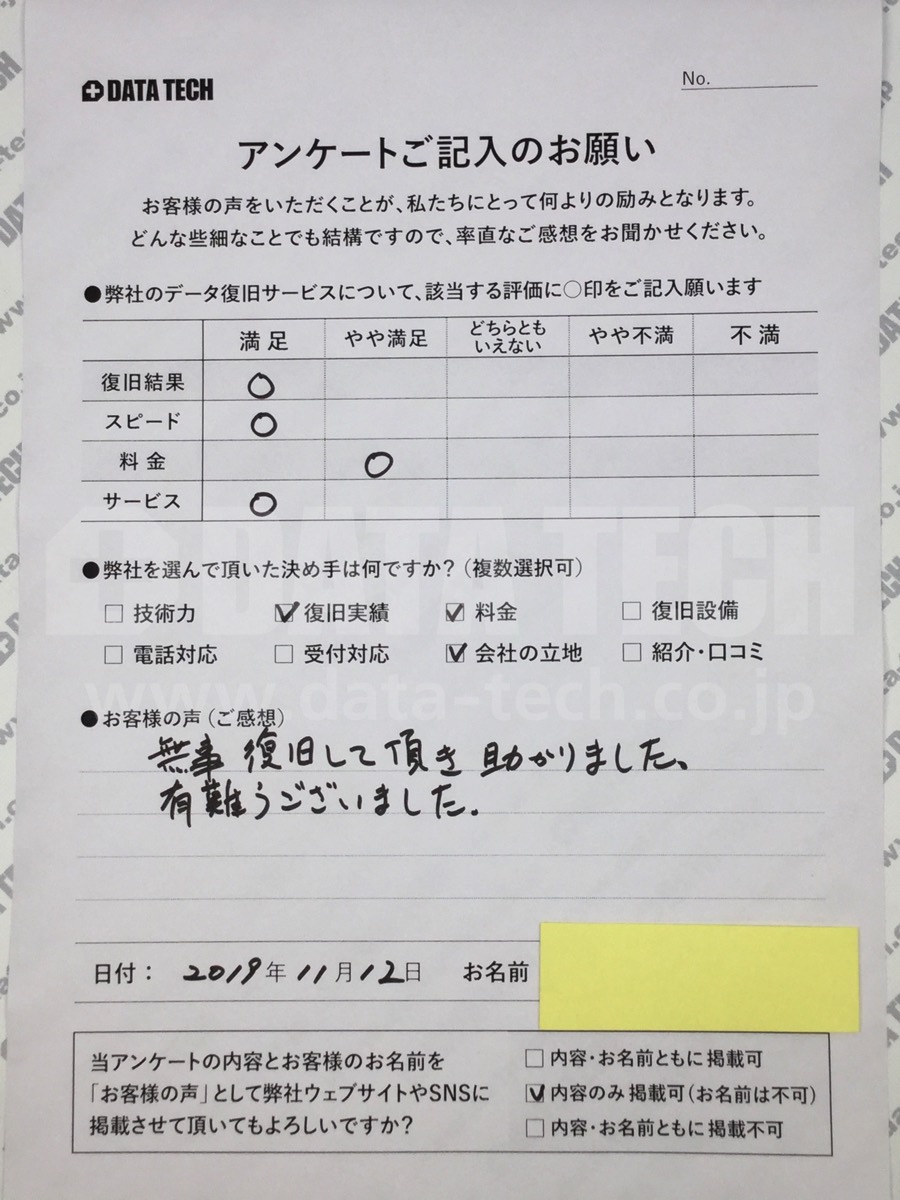 DATA TECH
No.
アンケートご記入のお願い
お客様の声をいただくことが、私たちにとって何よりの励みとなります。
どんな些細なことでも結構ですので、率直なご感想をお聞かせください。
●弊社のデータ復旧サービスについて、該当する評価に○印をご記入願います
満足 やや満足 どちらとも やや不満 不満
いえない
復旧結果 ○
スピード ○
料金 ○
サービス ○
DATA TECH
●弊社を選んで頂いた決め手は何ですか？（複数選択可）
□ 技術力 ☑ 復旧実績 ☑ 料金 □ 復旧設備
□ 電話対応 □ 受付対応 ☑ 会社の立地 □ 紹介・口コミ
www.data-tech.co.jp
●お客様の声（ご感想）
無事 復旧して頂き 助かりました。
有難うございました。
日付： 2019年 11月12日 お名前
当アンケートの内容とお客様のお名前を
「お客様の声」として弊社ウェブサイトやSNSに
掲載させて頂いてもよろしいですか？
□ 内容・お名前ともに掲載可
☑ 内容のみ掲載可（お名前は不可）
□ 内容・お名前ともに掲載不可